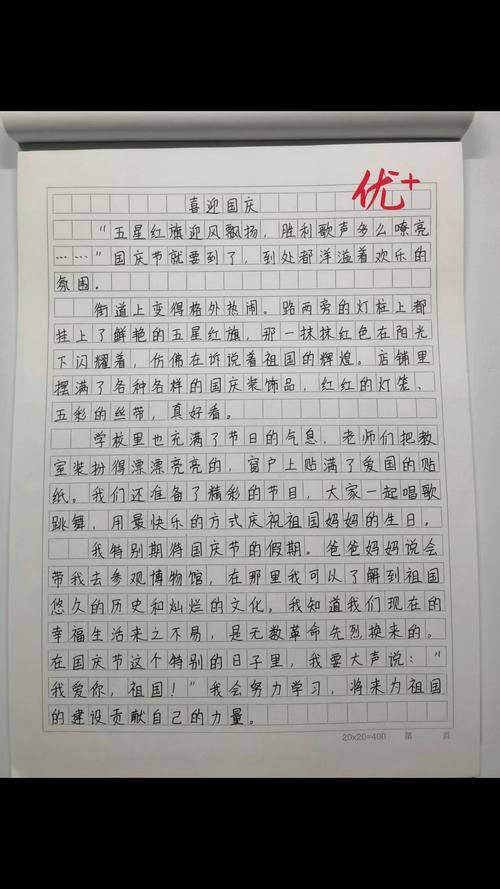 优+
喜迎国庆
“五星红旗迎风飘扬，胜利歌声多么嘹亮
……”国庆节就要到了，到处都洋溢着欢乐的
氛围。
街道上变得格外热闹。路两旁的灯柱上都
挂上了鲜艳的五星红旗，那一抹抹红色在阳光
下闪耀着，仿佛在诉说着祖国的辉煌。店铺里
摆满了各种各样的国庆装饰品，红红的灯笼、
五彩的丝带，真好看。
学校里也充满了节日的气息，老师们把教
室装扮得漂漂亮亮的，窗户上贴满了爱国的贴
纸。我们还准备了精彩的节目，大家一起唱歌
跳舞，用最快乐的方式庆祝祖国妈妈的生日。
我特别期待国庆节的假期。爸爸妈妈说会
带我去参观博物馆，在那里我可以了解到祖国
悠久的历史和灿烂的文化。我知道我们现在的
幸福生活来之不易，是无数革命先烈换来的。
在国庆节这个特别的日子里，我要大声说：“
我爱你，祖国！”我会努力学习，将来为祖国
的建设贡献自己的力量。
20x20=400 第 页